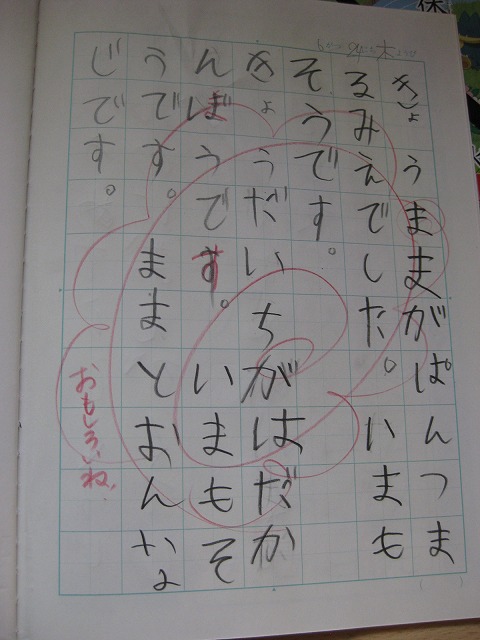 きょうままがぱんつま
るみえでした。いまも
そうです。
きょうだいちがはだか
んぼうです。いまもそ
うです。ままとおんな
じです。
おもしろいね。